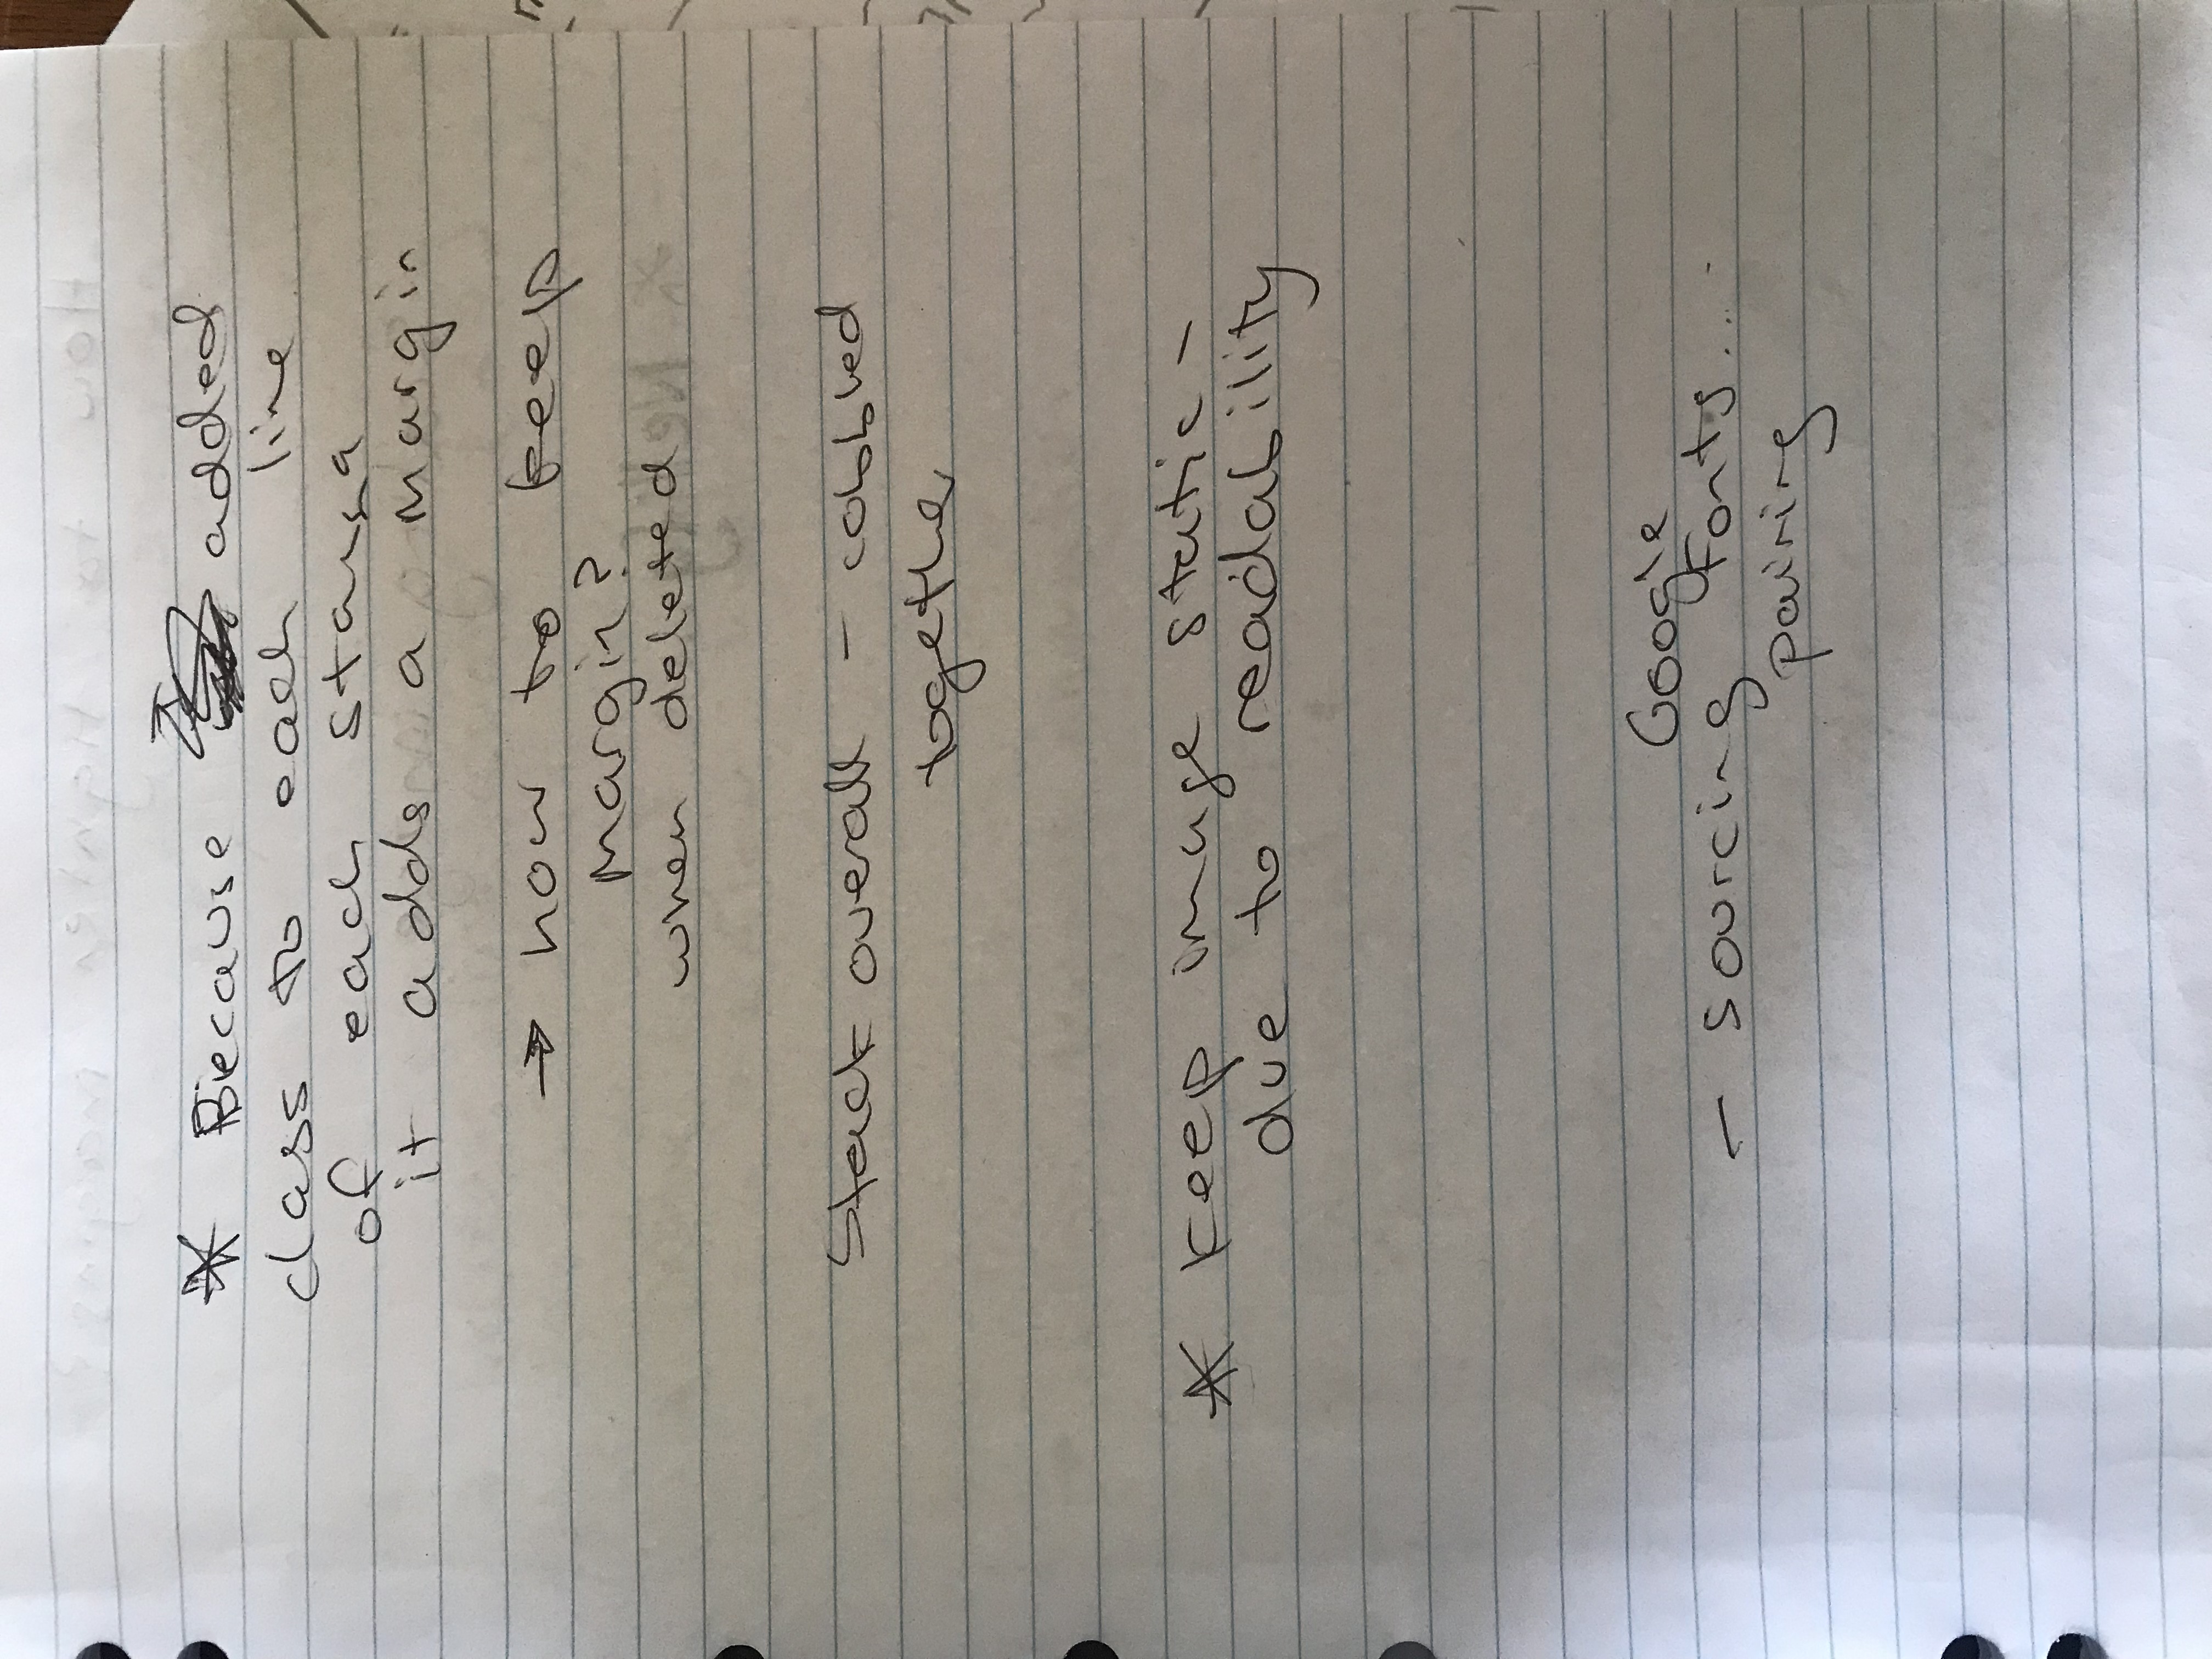 * Because added
class to each line
of each stanza
it adds a margin
→ how to keep
margin?
when deleted
Stack overall - cobbled
together
* Keep image static -
due to readability
Google
- sourcing Fonts...
pairing